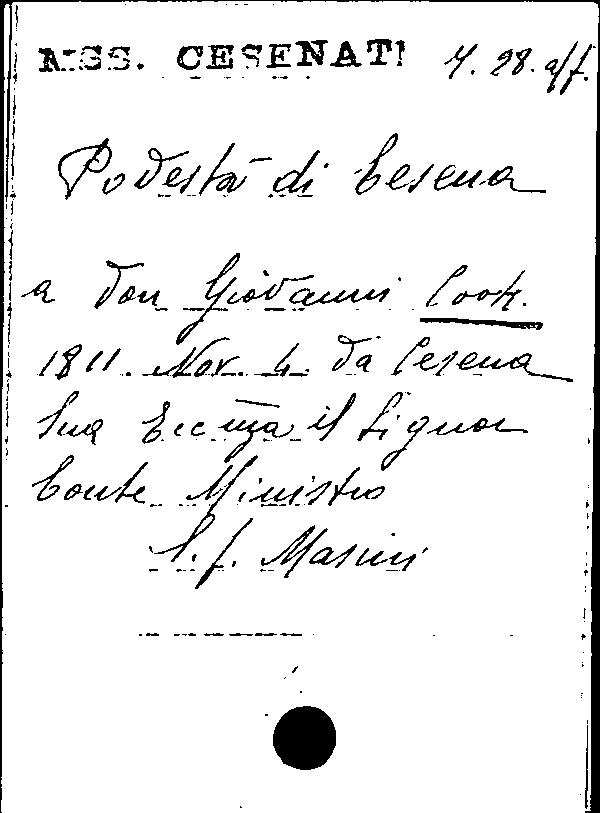 MSS. CESENATI 4. 28. aff.
Podestà di Cesena
a don Giovanni Cook.
1811. Nov. 4. da Cesena
Sua Eccnza il Signor
Conte Ministro
S. f. Masini